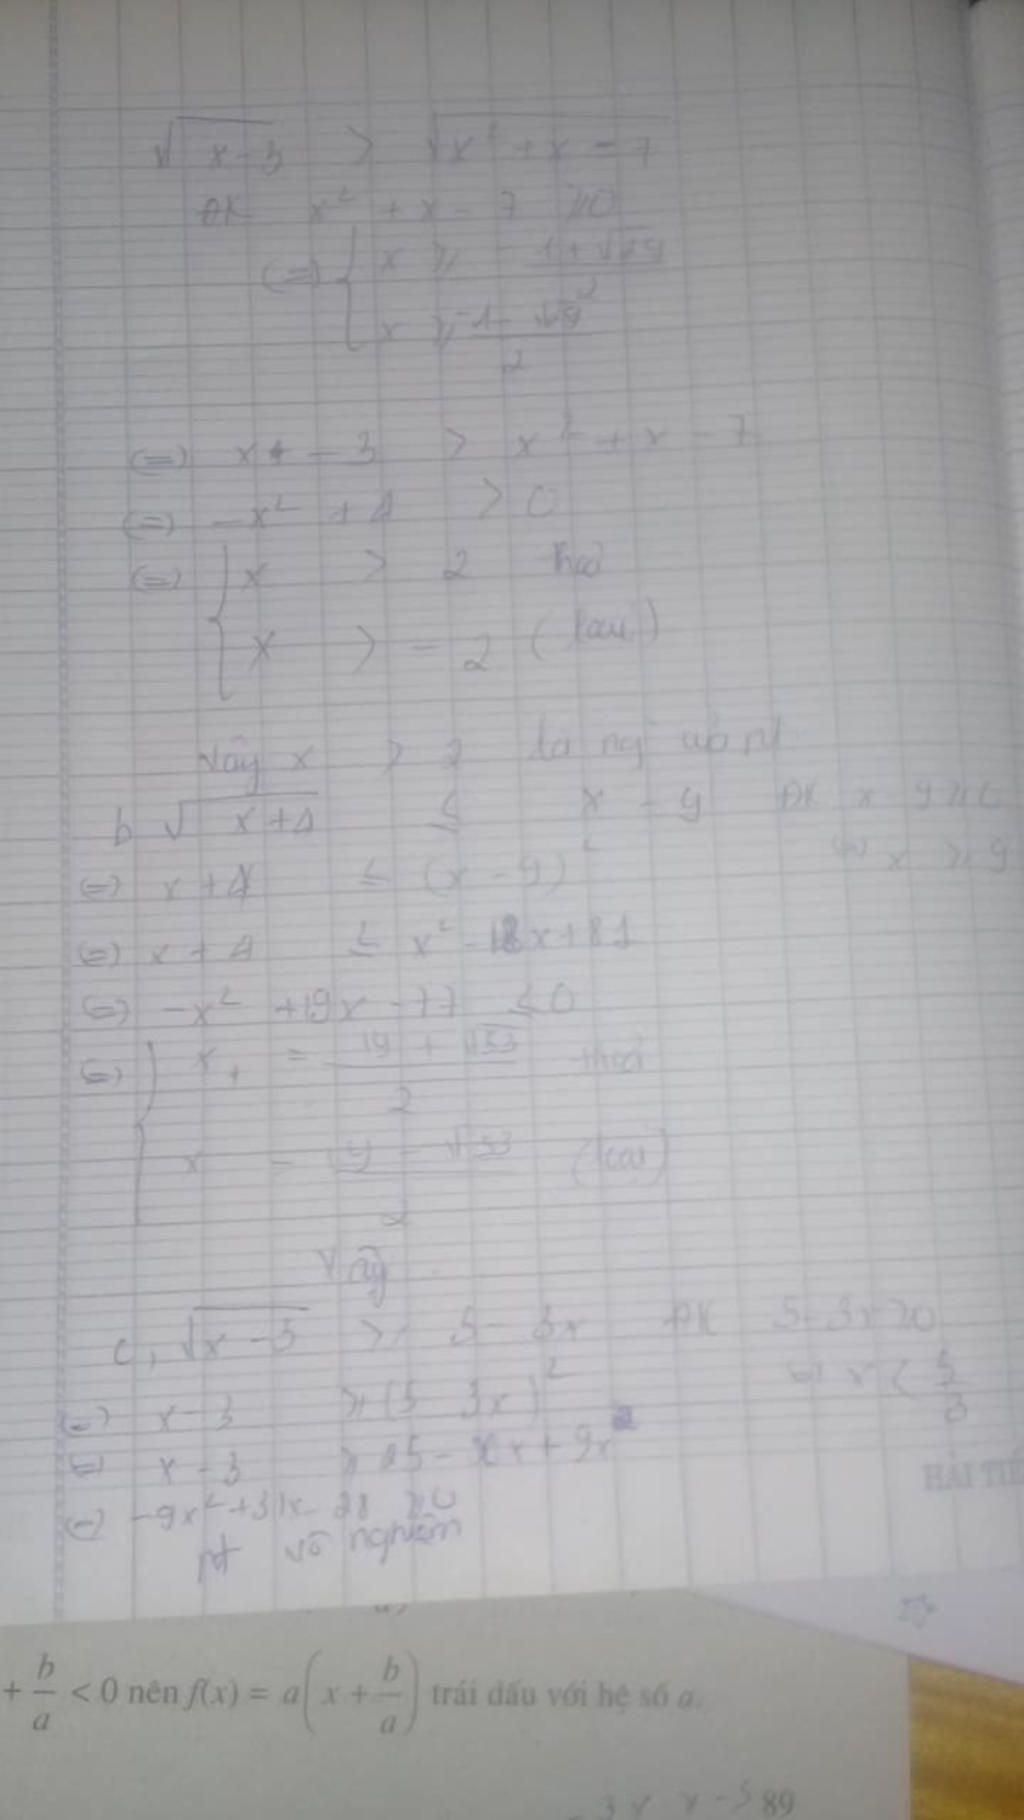 √(x - 3) > √(x² + x - 7)
ĐK x² + x - 7 ⩾ 0
(=) { x ⩾ -1 + √29 / 2
x ⩾ -1 - √29 / 2
(=) x - 3 > x² + x - 7
(=) -x² + 4 > 0
(=) { x > 2 thoả
x > -2 (loại)
Vậy x > 2 là
b √(x + 4) ≤ x - 9 ĐK x 9 ⩾
x ⩾ 9
(=) x + 4 ≤ (x - 9)²
(=) x + 4 ≤ x² - 18x + 81
(=) -x² + 19x - 77 ≤ 0
(=) { x₁ = 19 + √53 / 2 thoả
x = 19 - √53 / 2 (loại)
Vậy
c, √(x - 3) ⩾ 5 - 3x ĐK 5 - 3x ⩾ 0
x < 5/3
(=) x - 3 ⩾ (5 - 3x)²
(=) x - 3 ⩾ 25 - x + 9x²
(=) -9x² + 31x - 28 ⩾ 0
pt vô nghiệm
BÀI TI
+ b/a < 0 nên f(x) = a(x + b/a) trái dấu với hệ số a.
3x x - 5 89